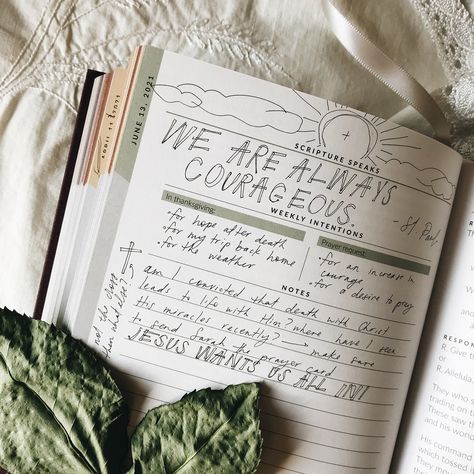 JUNE 13, 2021
APRIL 11, 2021
SCRIPTURE SPEAKS
WE ARE ALWAYS
COURAGEOUS.
- St. Paul
WEEKLY INTENTIONS
In thanksgiving:
· for hope after death
· for my trip back home
· for the weather
Prayer request:
· for an increase in
courage
· for a desire to pray
NOTES
am I convicted that death with Christ
leads to life with Him? where have I seen
His miracles recently? → make sure
to send Sarah the prayer card
JESUS WANTS US ALL IN!
not the cross
then what else?
RESPON
R. Give t
or
R. Alleluia,
They who s
trading on
These saw t
and his won
His comman
which tosse
They mo